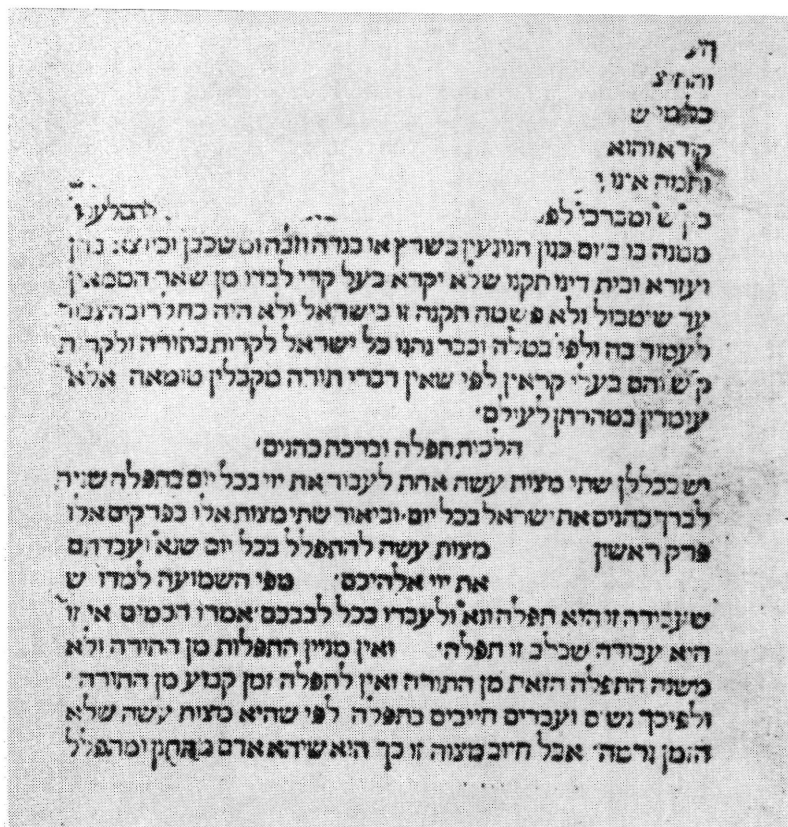 והחצ
כלמי ש
קורא והוא
ותמה אינו
ומברכי לפ
ממנה בו ביום כגון הנוגעין בשרץ או בנדה וזבה ומשכבן וכיוצא בהן
ועזרא ובית דינו תקנו שלא יקרא בעל קרי לבדו מן שאר הטמאין
עד שיטבול ולא פשטה תקנה זו בישראל ולא היה כח לרוב הצבור
לעמוד בה ולפי׳ בטלה וכבר נהגו כל ישראל לקרות בתורה ולקר ת
ק״ש והם בעלי קראין לפי שאין דברי תורה מקבלין טומאה אלא
עומדין בטהרתן לעולם׳
הלכות תפלה וברכת כהנים׳
יש בכללן שתי מצות עשה אחת לעבוד את יויי בכל יום בתפלה שנייה
לברך כהנים את ישראל בכל יום׳ וביאור שתי מצות אלו בפרקים אלו
פרק ראשון מצות עשה להתפלל בכל יום שנא׳ ועבדתם
את יויי אלהיכם׳ מפי השמועה למדו ש
שעבודה זו היא תפלה ונא׳ ולעבדו בכל לבבכם׳ אמרו חכמים אי זו
היא עבודה שבלב זו תפלה׳ ואין מניין התפלות מן התורה ולא
משנה התפלה הזאת מן התורה ואין לתפלה זמן קבוע מן התורה׳
ולפיכך נשים ועבדים חייבים בתפלה לפי שהיא מצות עשה שלא
הזמן גרמה׳ אבל חיוב מצוה זו כך הוא שיהא אדם מתחנן ומתפלל